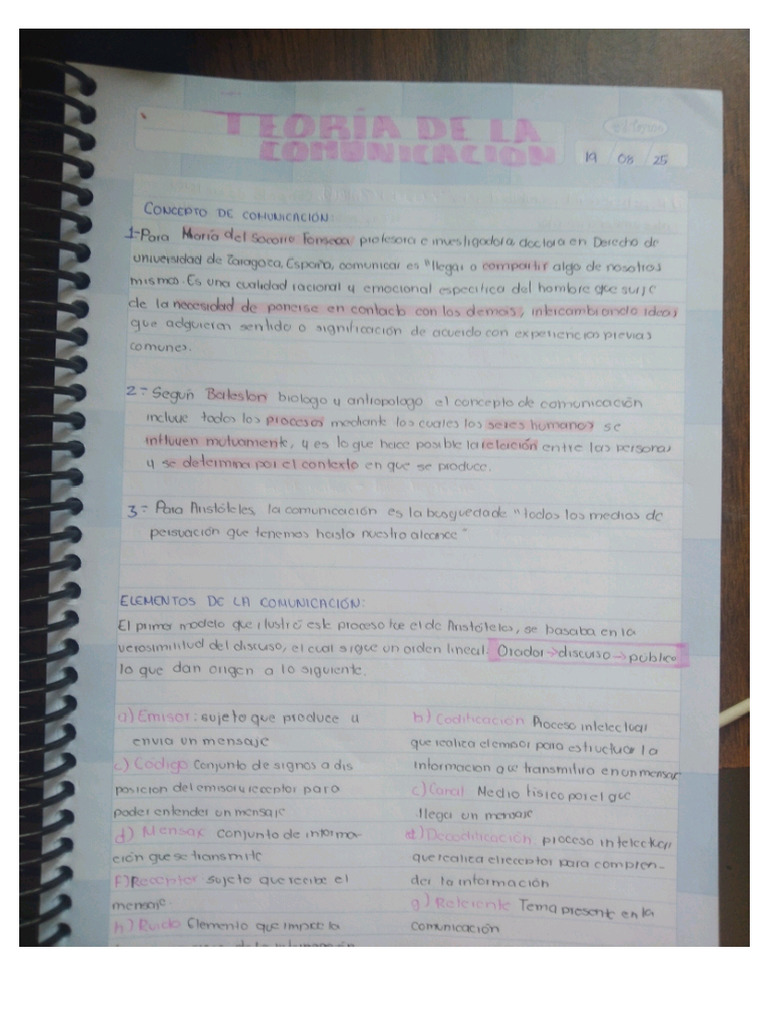 TEORÍA DE LA
COMUNICACIÓN
19 / 08 / 25
CONCEPTO DE COMUNICACIÓN:
1-Para María del Socorro Fonseca profesora e investigadora, doctora en Derecho de
universidad de Zaragoza, España, comunicar es "llegar a compartir algo de nosotros
mismos. Es una cualidad racional y emocional especifica del hombre que surge
de la necesidad de ponerse en contacto con los demás, intercambiando ideas
que adquieren sentido o significación de acuerdo con experiencias previas
comunes.
2- Según Bateston biologo y antropologo el concepto de comunicación
incluye todos los procesos mediante los cuales los seres humanos se
influyen mutuamente, y es lo que hace posible la relación entre las personas
y se determina por el contexto en que se produce.
3- Para Aristóteles, la comunicación es la busqueda de "todos los medios de
persuación que tenemos hasta nuestro alcance"
ELEMENTOS DE LA COMUNICACIÓN:
El primer modelo que ilustró este proceso fue el de Aristóteles, se basaba en la
verosimilitud del discurso, el cual sigue un orden lineal. Orador→discurso→público
lo que dan origen a lo siguiente.
a) Emisor: sujeto que produce u
envia un mensaje
b) Codificación Proceso intelectual
que realiza el emisor para estructurar la
información que transmitira en un mensaje
c) Código Conjunto de signos a dis
posicion del emisor y receptor para
poder entender un mensaje
c) Canal Medio fisico por el que
llega un mensaje
d) Mensaje Conjunto de informa-
ción que se transmite
e) Decodificación proceso intelectual
que realiza el receptor para compren-
der la información
f) Receptor sujeto que recibe el
mensaje.
g) Referente Tema presente en la
comunicación
h) Ruido Elemento que impide la